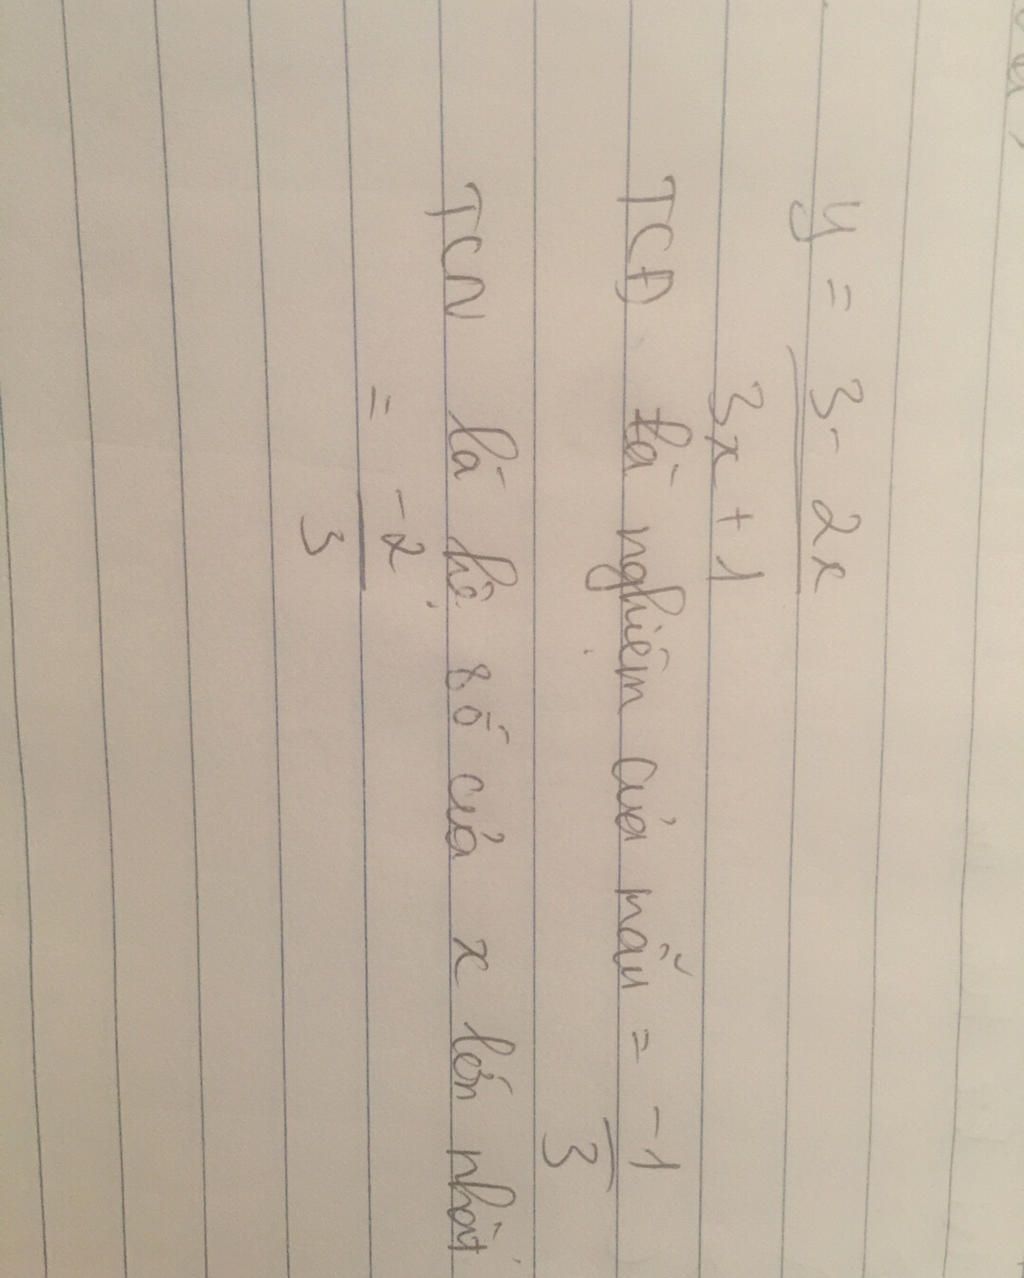 y = 3 - 2x
3x + 1
TCĐ là nghiệm của mẫu = -1
3
TCN là hệ số của x lớn nhất
= -2
3